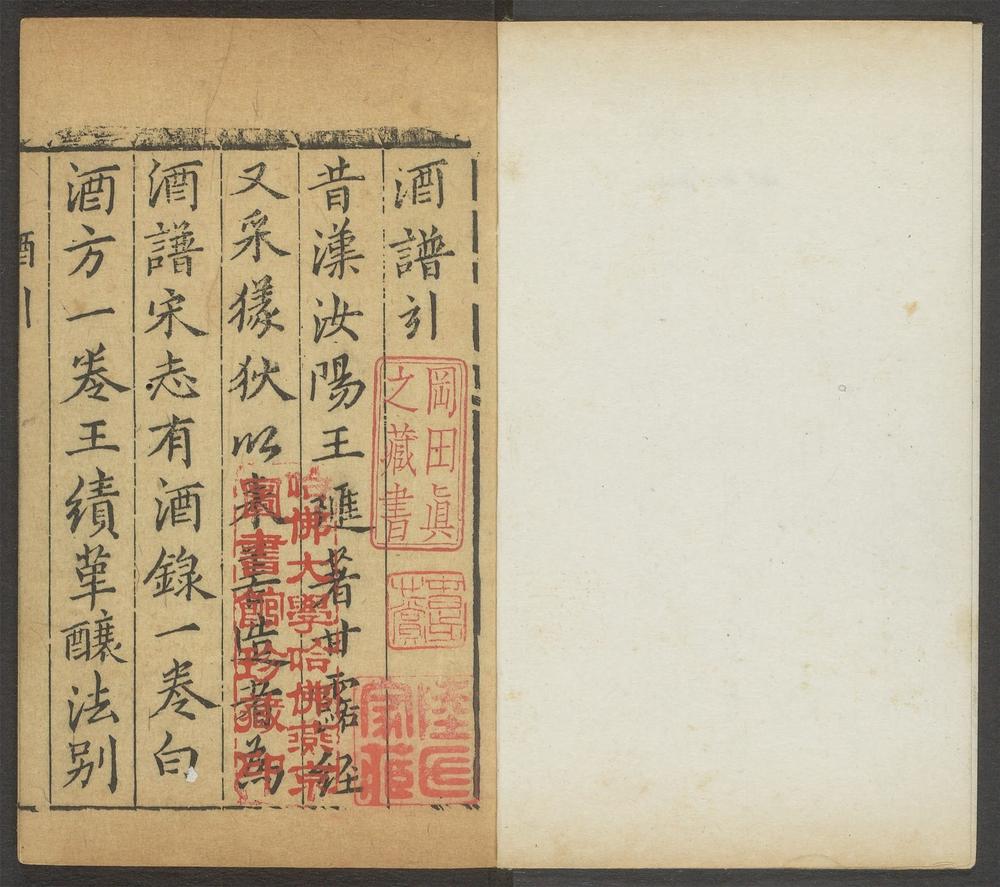 酒譜引
昔漢汝陽王璡著甘露經
又采狄以來善造者為
酒譜宋志有酒錄一卷白
酒方一卷王績革釀法別
酒引
岡田眞
之藏書
哈佛大學哈佛燕京
圖書館珍藏印